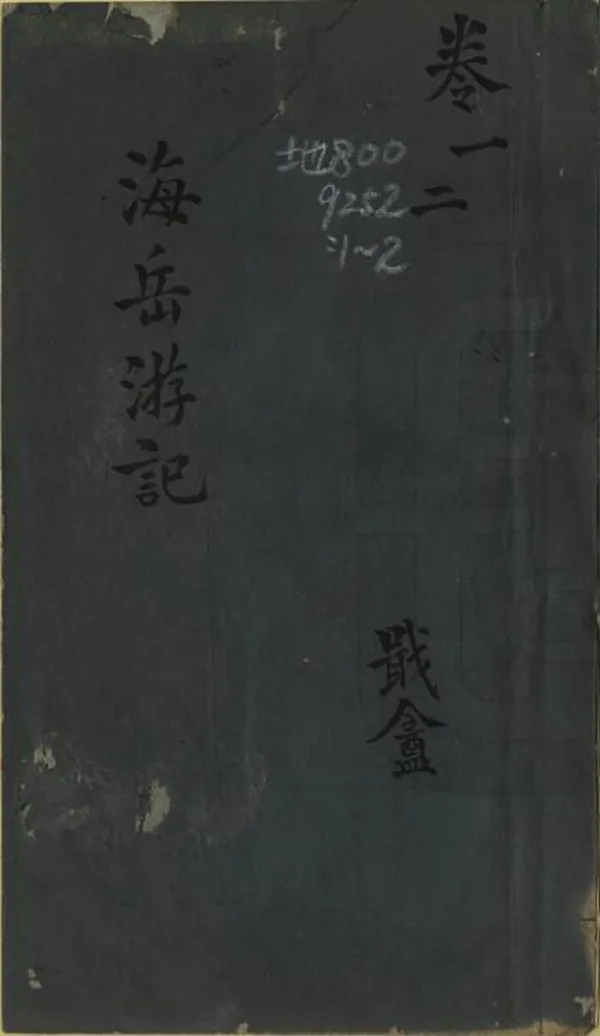 卷一二
地800
9252
:1~2
盦
海岳游記